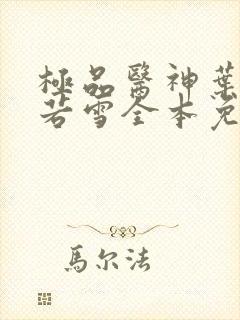 極品醫神葉
若雪全本免
馬尔法